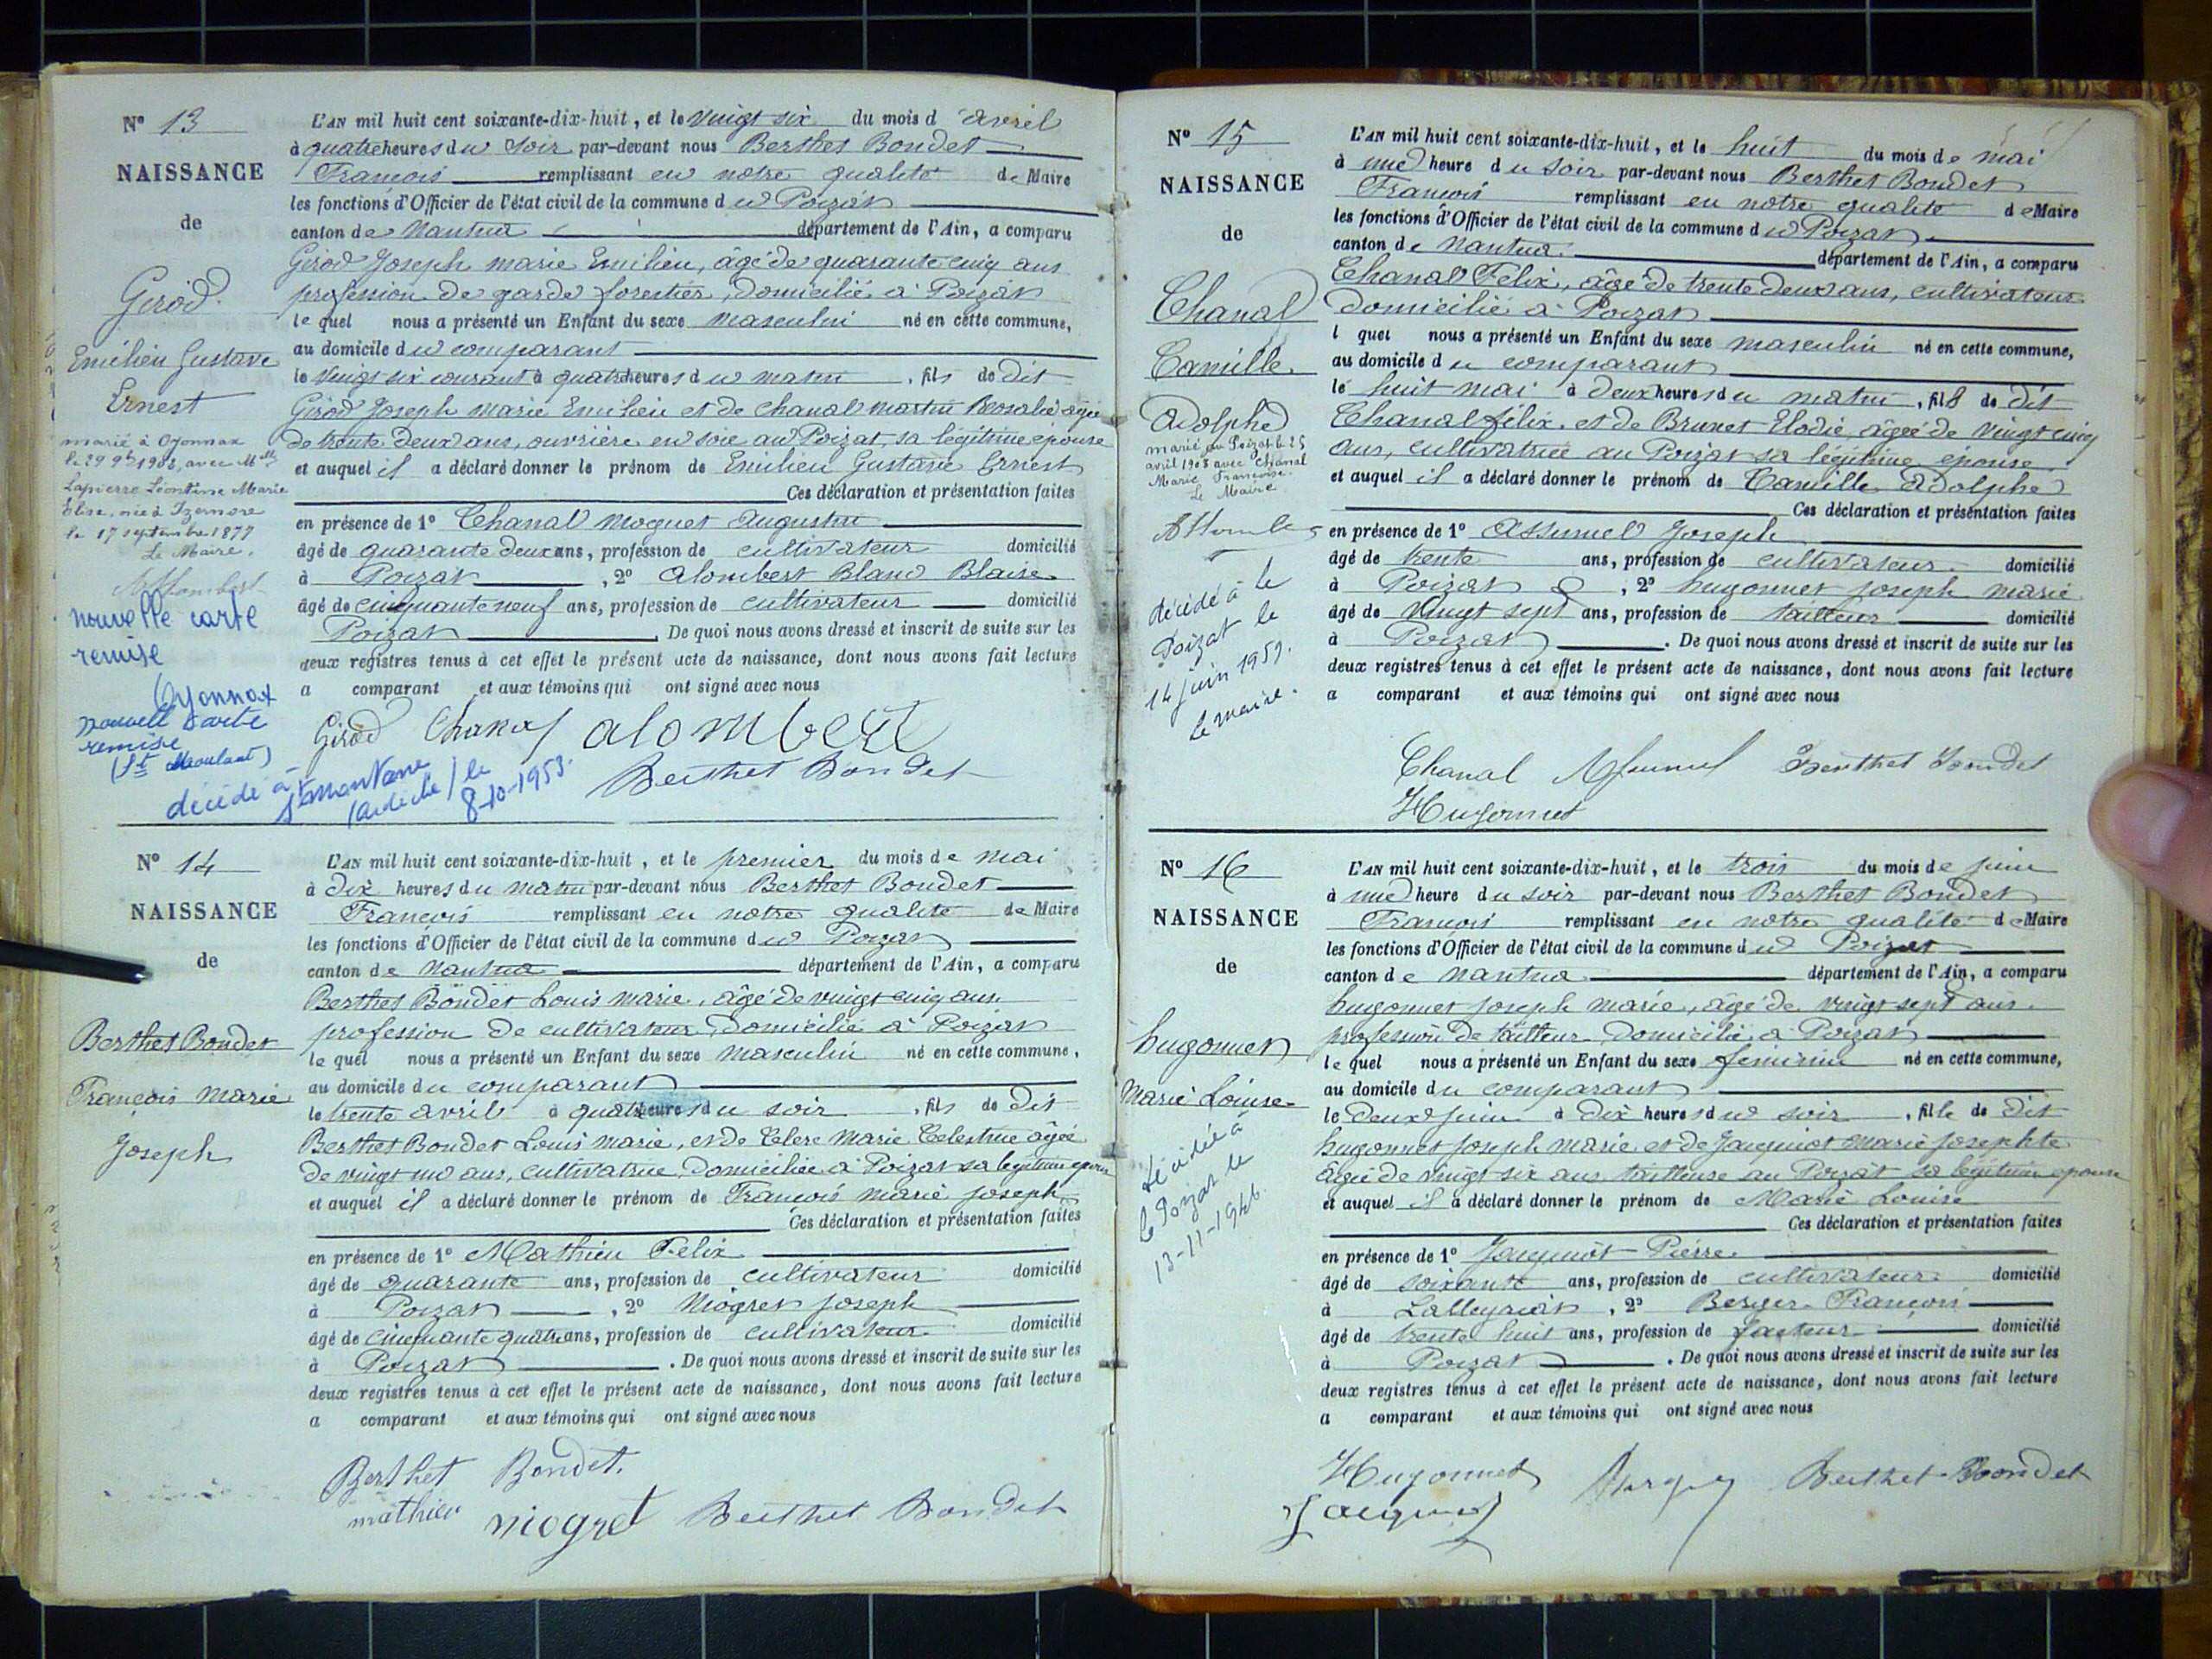 N° 13
NAISSANCE
de
Girod
Emilien Gustave
Ernest
marié à Oyonnax
le 29 9bre 1902, avec Mlle
Lapierre Léontine Marie
Elise, née à Izernore
le 17 septembre 1877
Le Maire.
nouvelle carte
remise
Oyonnax
nouvelle carte
remise
décédé à
(ardèche) le
8-10-1953.
L'AN mil huit cent soixante-dix-huit, et le vingt six du mois d'avril
à quatre heures du soir par-devant nous Berthet Bondet
François remplissant en notre qualité de Maire
les fonctions d'Officier de l'état civil de la commune du Poizat
canton de Nantua département de l'Ain, a comparu
Girod Joseph marie Emilien, âgé de quarante cinq ans
profession de garde forestier, domicilié à Poizat
le quel nous a présenté un Enfant du sexe masculin né en cette commune,
au domicile du comparant
le vingt six courant à quatre heures du matin, fils de dit
Girod Joseph marie Emilien et de Chanal Martin Rosalie âgée
de trente deux ans, ouvrière en soie au Poizat, sa légitime épouse
et auquel il a déclaré donner le prénom de Emilien Gustave Ernest
Ces déclaration et présentation faites
en présence de 1° Chanal Moguet Augustin
âgé de quarante deux ans, profession de cultivateur domicilié
à Poizat, 2° Alombert Bland Blaise
âgé de cinquante neuf ans, profession de cultivateur domicilié
Poizat. De quoi nous avons dressé et inscrit de suite sur les
deux registres tenus à cet effet le présent acte de naissance, dont nous avons fait lecture
a comparant et aux témoins qui ont signé avec nous
Girod Chanal alombert
Berthet Bondet
N° 14
NAISSANCE
de
Berthet Bondet
François Marie
Joseph
L'AN mil huit cent soixante-dix-huit, et le premier du mois de mai
à dix heures du matin par-devant nous Berthet Bondet
François remplissant en notre qualité de Maire
les fonctions d'Officier de l'état civil de la commune du Poizat
canton de Nantua département de l'Ain, a comparu
Berthet Bondet Louis marie, âgé de vingt cinq ans
profession de cultivateur, domicilié à Poizat
le quel nous a présenté un Enfant du sexe masculin né en cette commune,
au domicile du comparant
le trente avril à quatre heures du soir, fils de dit
Berthet Bondet Louis Marie, et de Marie Celestine âgée
de vingt un ans, cultivatrice, domiciliée à Poizat sa légitime épouse
et auquel il a déclaré donner le prénom de François Marie Joseph
Ces déclaration et présentation faites
en présence de 1° Mathieu Félix
âgé de quarante ans, profession de cultivateur domicilié
à Poizat, 2° Niogret Joseph
âgé de cinquante quatre ans, profession de cultivateur domicilié
à Poizat. De quoi nous avons dressé et inscrit de suite sur les
deux registres tenus à cet effet le présent acte de naissance, dont nous avons fait lecture
a comparant et aux témoins qui ont signé avec nous
Berthet Bondet.
mathieu niogret Berthet Bondet
N° 15
NAISSANCE
de
Chanal
Camille
Adolphe
marié au Poizat le 25
avril 1908 avec Chanal
Marie Françoise.
Le Maire
décédé à le
Poizat le
14 juin 1959.
Le maire.
L'AN mil huit cent soixante-dix-huit, et le huit du mois de mai
à une heure du soir par-devant nous Berthet Bondet
François remplissant en notre qualité de Maire
les fonctions d'Officier de l'état civil de la commune du Poizat
canton de Nantua. département de l'Ain, a comparu
Chanal Félix, âgé de trente deux ans, cultivateur
domicilié à Poizat
l quel nous a présenté un Enfant du sexe masculin né en cette commune,
au domicile du comparant
le huit mai à deux heures du matin, fils de dit
Chanal félix. et de Brunet Elodie, âgée de vingt cinq
ans, cultivatrice au Poizat sa légitime épouse.
et auquel il a déclaré donner le prénom de Camille Adolphe
Ces déclaration et présentation faites
en présence de 1° Assumel Joseph
âgé de trente ans, profession de cultivateur. domicilié
à Poizat, 2° hugonnet joseph marie
âgé de vingt sept ans, profession de tailleur domicilié
à Poizat. De quoi nous avons dressé et inscrit de suite sur les
deux registres tenus à cet effet le présent acte de naissance, dont nous avons fait lecture
a comparant et aux témoins qui ont signé avec nous
Chanal Assumel Berthet Bondet
Hugonnet
N° 16
NAISSANCE
de
hugonnet
Marie Louise
décédée à
le Poizat le
13-11-1946
L'AN mil huit cent soixante-dix-huit, et le trois du mois de juin
à une heure du soir par-devant nous Berthet Bondet
François remplissant en notre qualité de Maire
les fonctions d'Officier de l'état civil de la commune du Poizat
canton de Nantua département de l'Ain, a comparu
hugonnet joseph marie, âgé de vingt sept ans.
profession de tailleur domicilié à Poizat
le quel nous a présenté un Enfant du sexe féminin né en cette commune,
au domicile du comparant
le deux juin à dix heures du soir, fille de dit
hugonnet joseph marie et de Jacquiot marie josephte
âgée de vingt six ans tailleuse au Poizat sa légitime épouse
et auquel il a déclaré donner le prénom de Marie Louise
Ces déclaration et présentation faites
en présence de 1° Jacquiot Pierre.
âgé de soixante ans, profession de cultivateur domicilié
à Lalleyriat, 2° Berger François
âgé de trente huit ans, profession de facteur domicilié
à Poizat. De quoi nous avons dressé et inscrit de suite sur les
deux registres tenus à cet effet le présent acte de naissance, dont nous avons fait lecture
a comparant et aux témoins qui ont signé avec nous
Hugonnet Berthet Bondet
Jacquiot